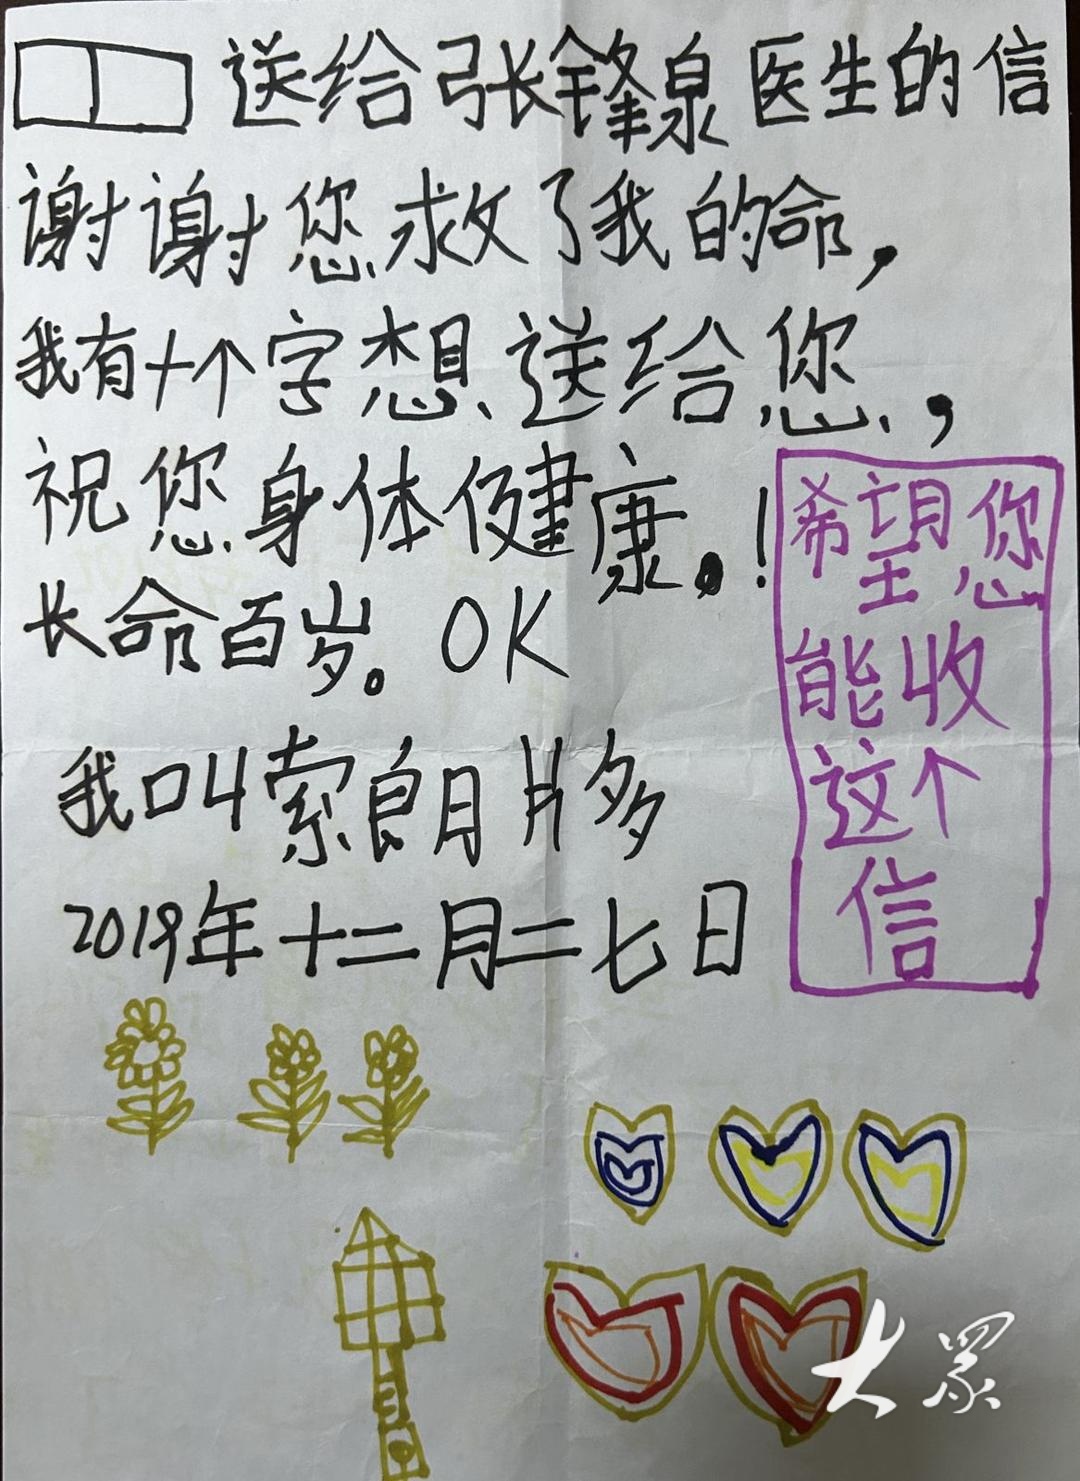 送给张锋泉医生的信
谢谢您救了我的命，
我有十个字想送给您，
祝您身体健康。！
长命百岁。OK
我叫索朗月多
2019年十二月二七日
希望您
能收
这个
信
大众